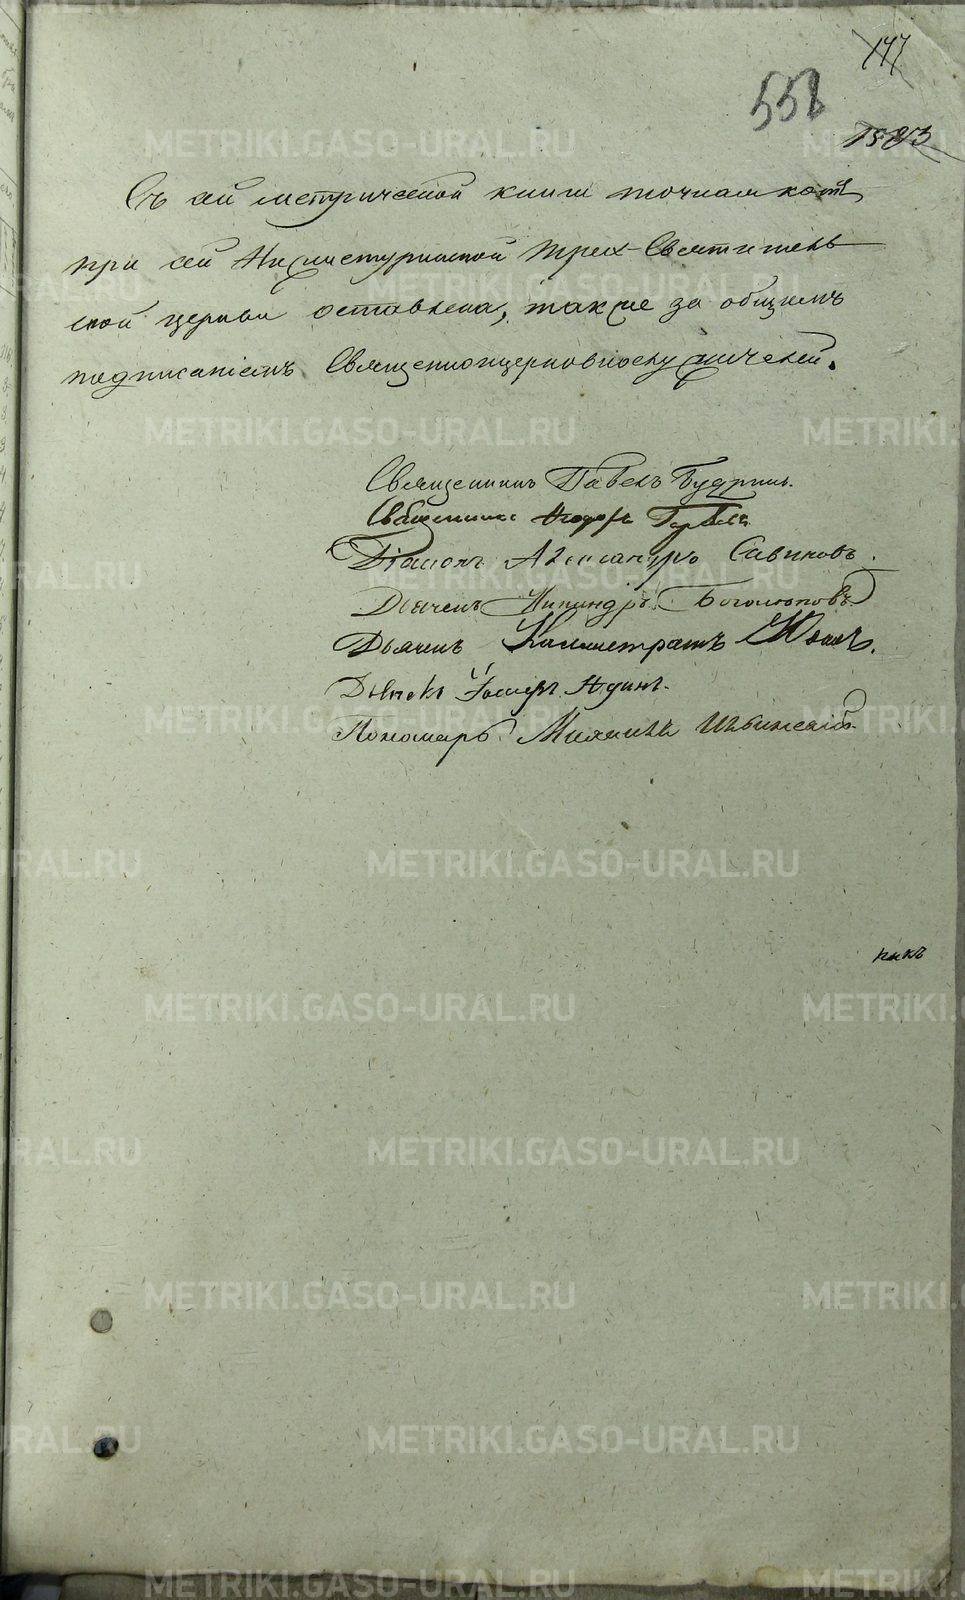 177
558
1583
Съ сей метрической книги точная копія
при сей Нижнетуринской Трех-Святитель
ской церкви оставлена, также за общимъ
подписаніемъ Священноцерковнослужителей.
Священникъ Павелъ Будринъ.
Священникъ Ѳеодоръ
Діаконъ Александръ Савиновъ.
Дьячекъ Никандръ Боголюповъ
Дьячекъ Каллистратъ
Дьячекъ
Пономарь Михаилъ Ильинский
METRIKI.GASO-URAL.RU